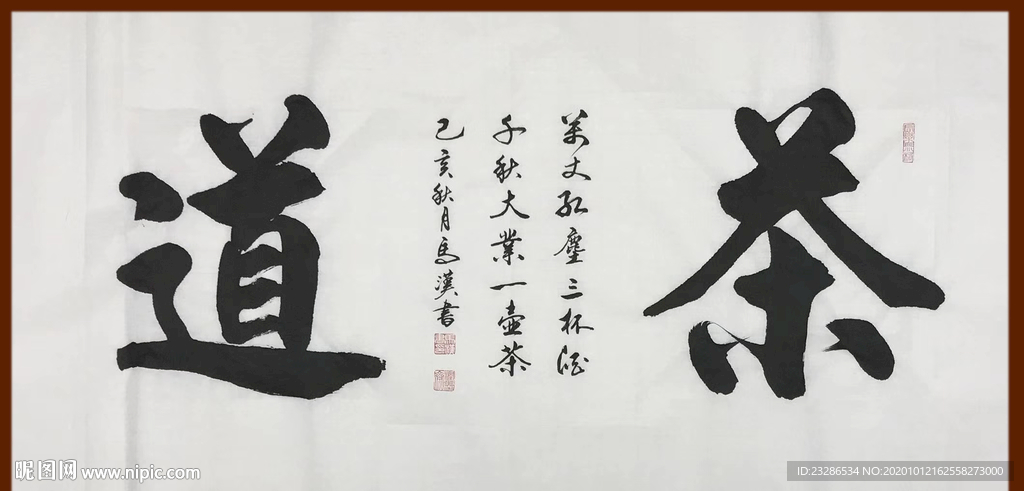 茶道
萬丈紅塵三杯酒
千秋大業一壺茶
己亥秋月馬漢書
昵图网 www.nipic.com
ID:23286534 NO:20201012162558273000